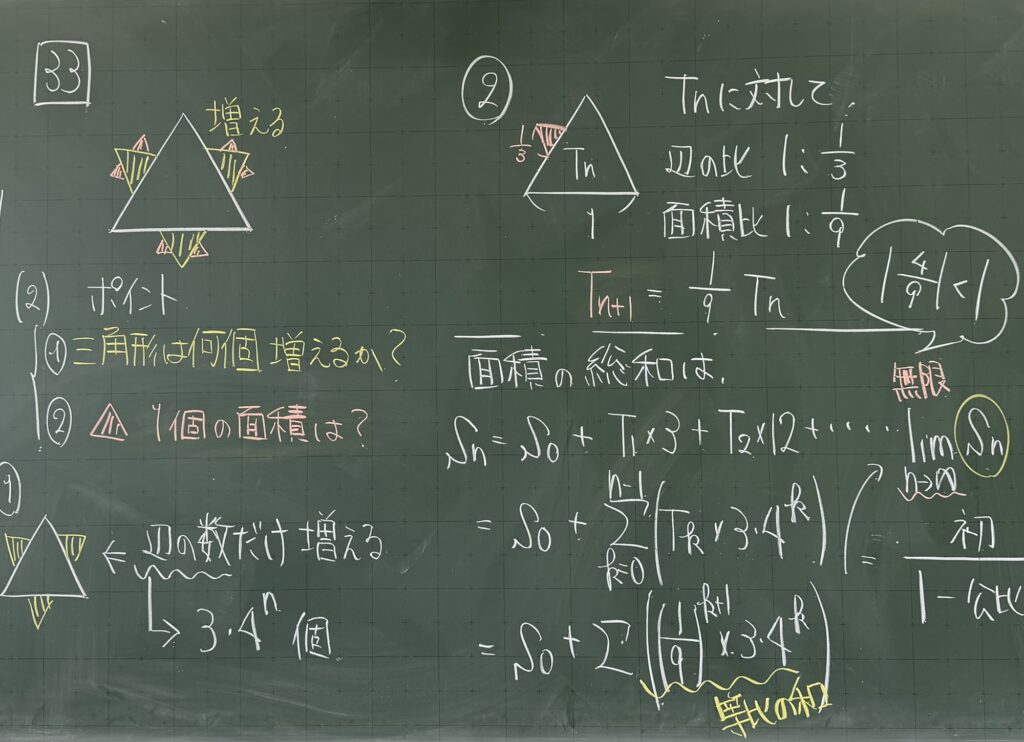 33
増える
(2) ポイント
① 三角形は何個増えるか?
② 1個の面積は?
①
← 辺の数だけ増える
↳ 3・4^n 個
②
1/3
Tn
1
Tnに対して、
辺の比 1:1/3
面積比 1:1/9
Tn+1 = 1/9 Tn
|4/9|<1
面積の総和は、
Sn = S0 + T1×3 + T2×12 + ······
= S0 + Σ_{k=0}^{n-1} (Tk × 3・4^k)
= S0 + Σ ((1/9)^{k+1} × 3・4^k)
等比の和
無限
lim_{n→∞} Sn
= 初/(1-公比